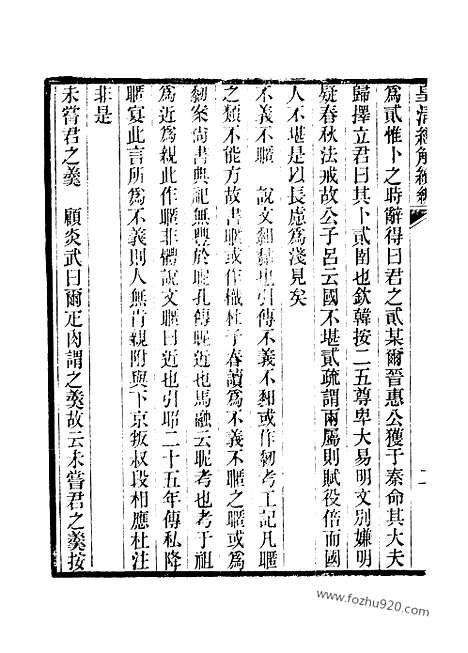 皇清經解續編
二
爲貳惟卜之時辭得曰君之貳某爾晉惠公獲于秦命其大夫
歸擇立君曰其卜貳圉也欽韓按二五尊卑大易明文別嫌明
疑春秋法戒故公子呂云國不堪貳疏謂兩屬則賦役倍而國
人不堪是以長慮爲淺見矣
不義不暱　說文䵒黏也引傳不義不䵒或作䵑考工記凡暱
之類不能方故書暱或作樴杜子春讀爲不義不暱之暱或爲
䵑案尚書典祀無豐於昵孔傳昵近也馬融云昵考也考于祖
爲近爲親此作暱非禮說文暱曰近也引昭二十五年傳私降
暱宴此言所爲不義則人無肯親附與下京叛叔段相應杜注
非是
未嘗君之羹　顧炎武曰爾疋肉謂之羹故云未嘗君之羹按
www.fozhu920.com